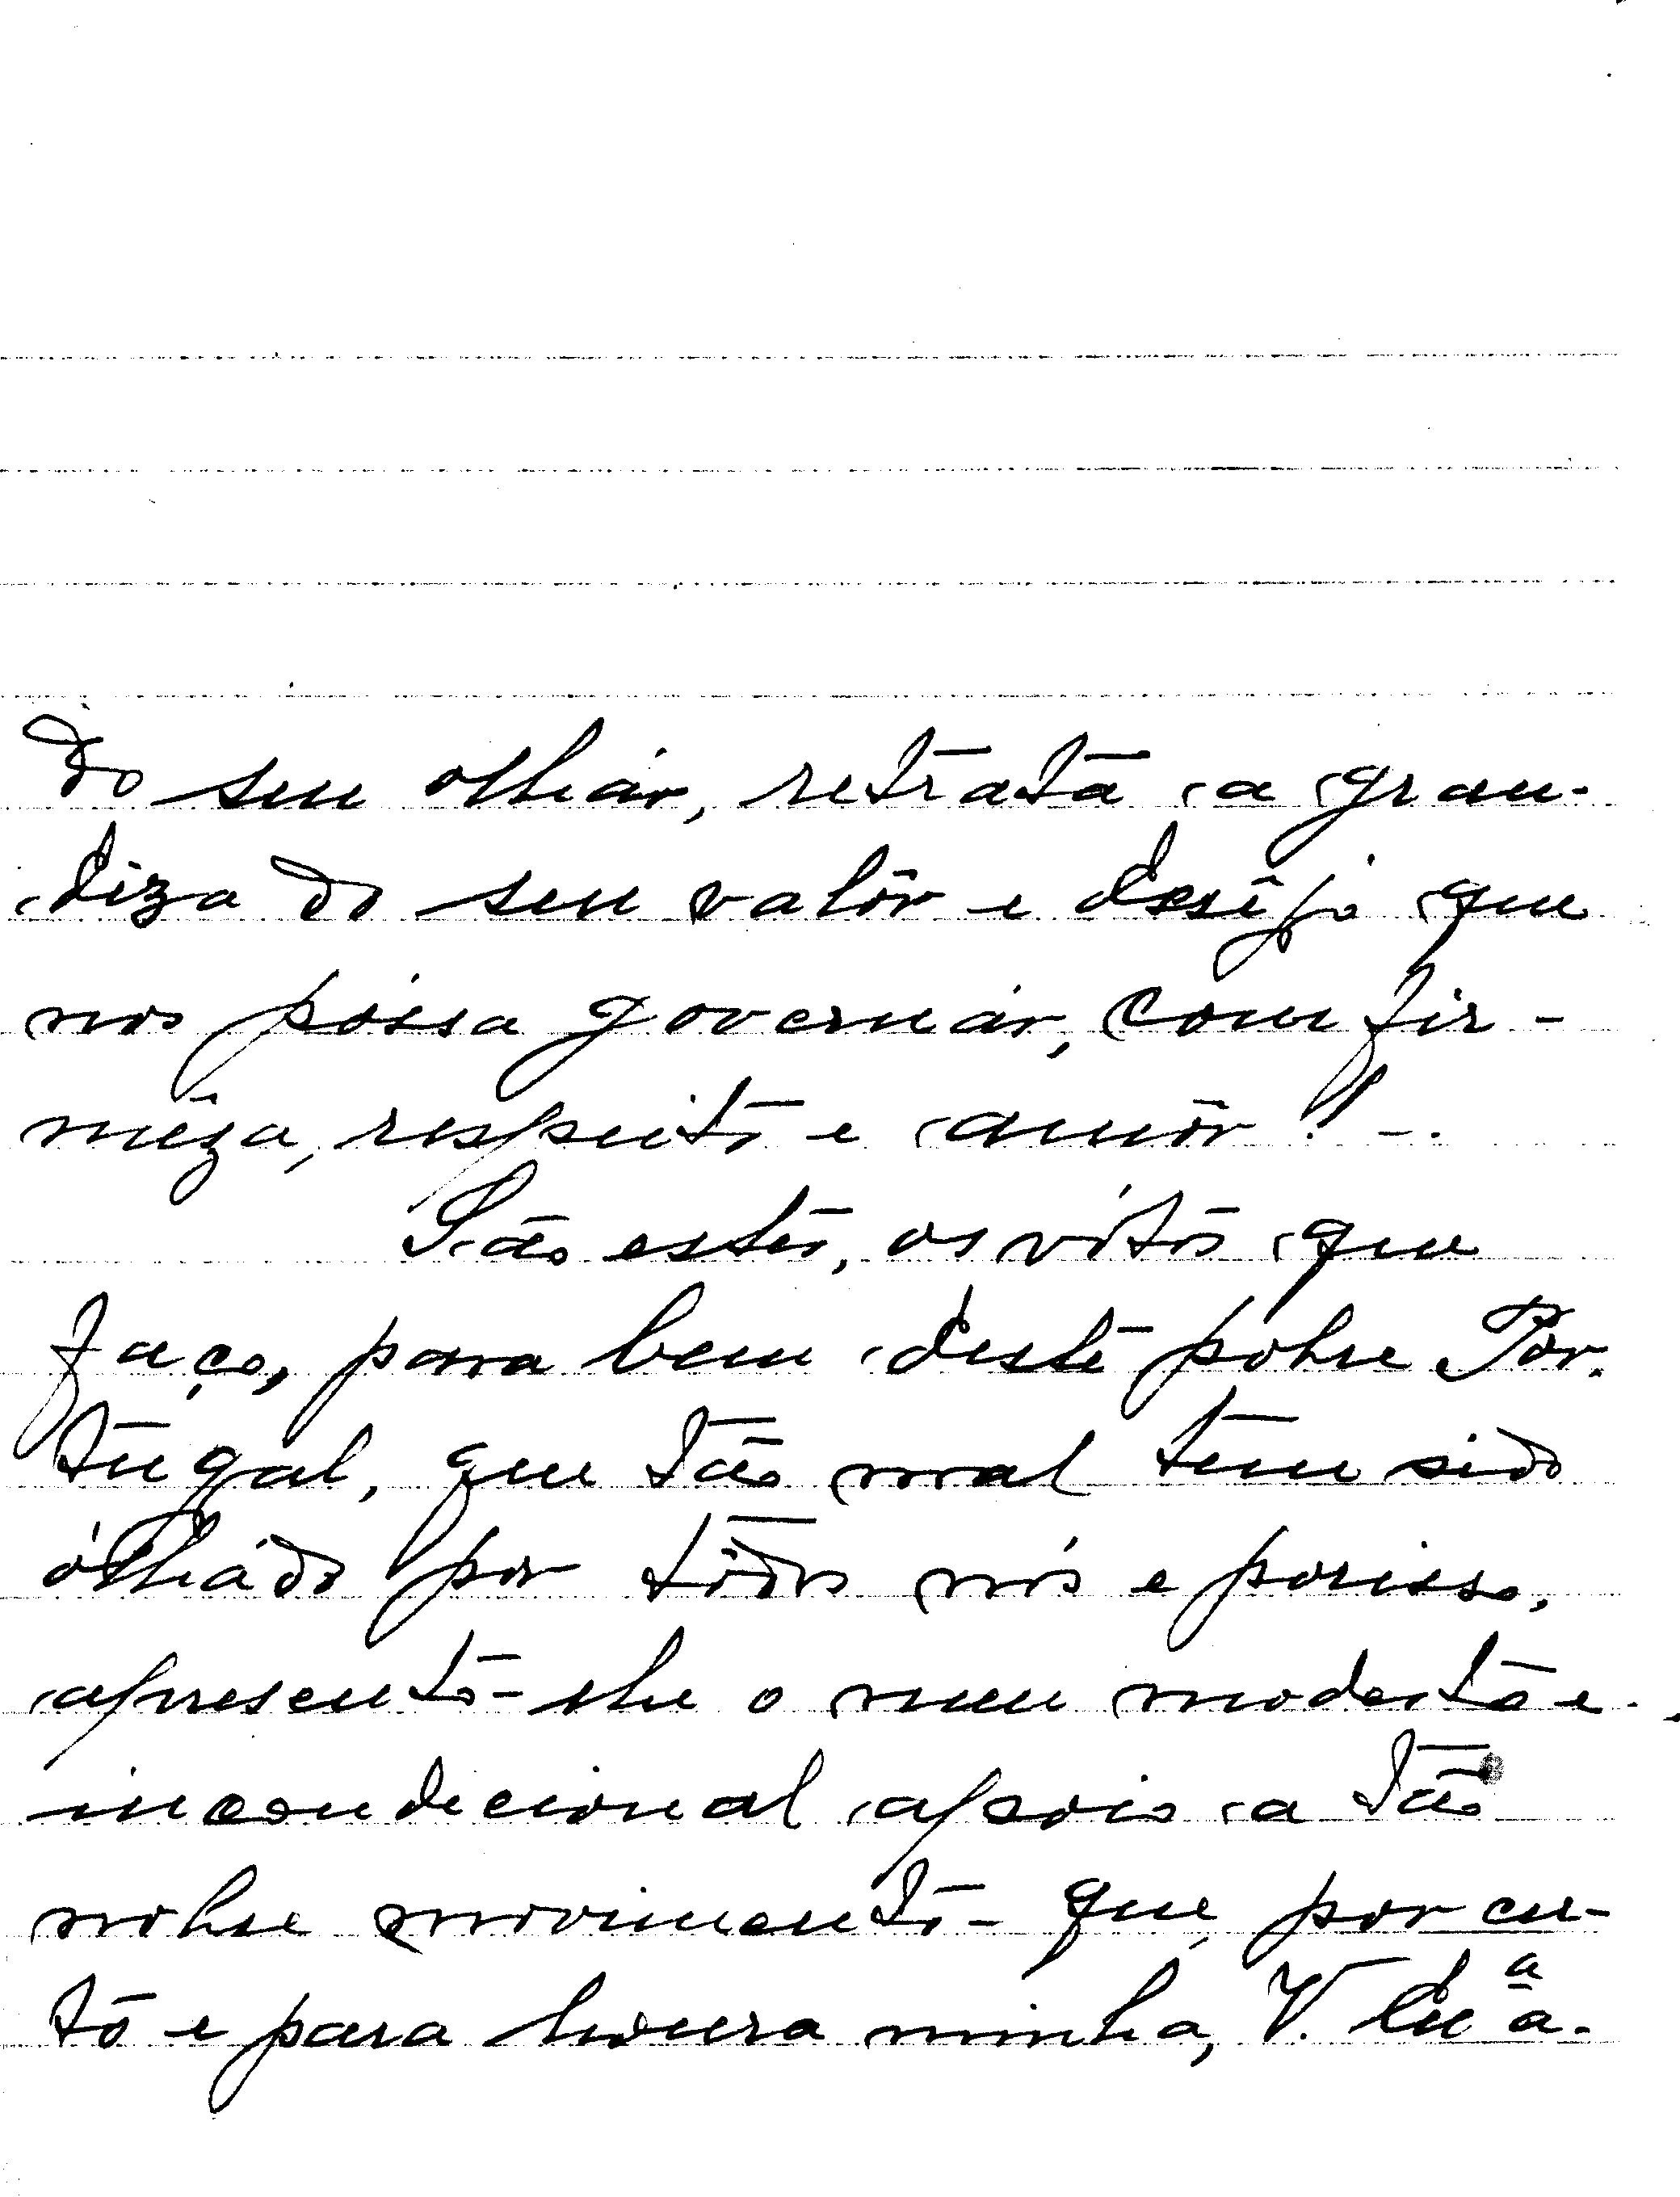 do seu olhár, retrata a gran-
diza do seu valôr e desêjo que
nos póssa governár, com fir-
mêza, respeito e amôr! -.
São estes, os vótos que
faço, para bem deste pobre Por-
tugal, que tão mal tem sido
ólhádo por tôdos nós e porisso,
apresento-lhe o meu modesto e
incondicional apoio a tão
nobre movimento - que, por cer-
to e para honra minha, V. Exª a-